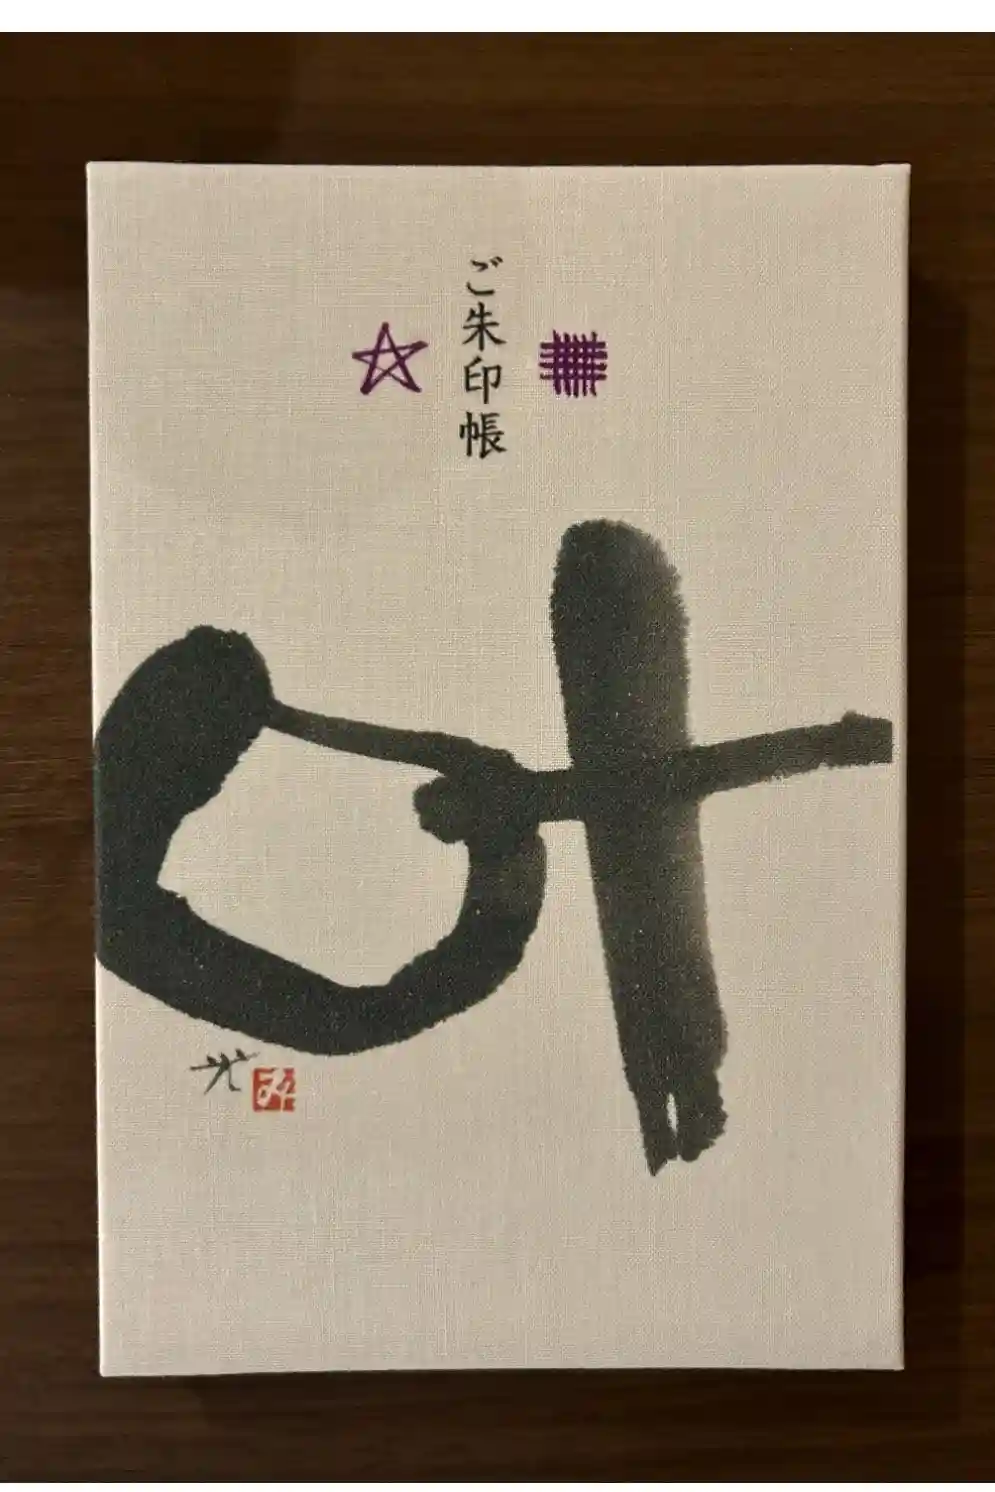 ご朱印帳
叶
光
み